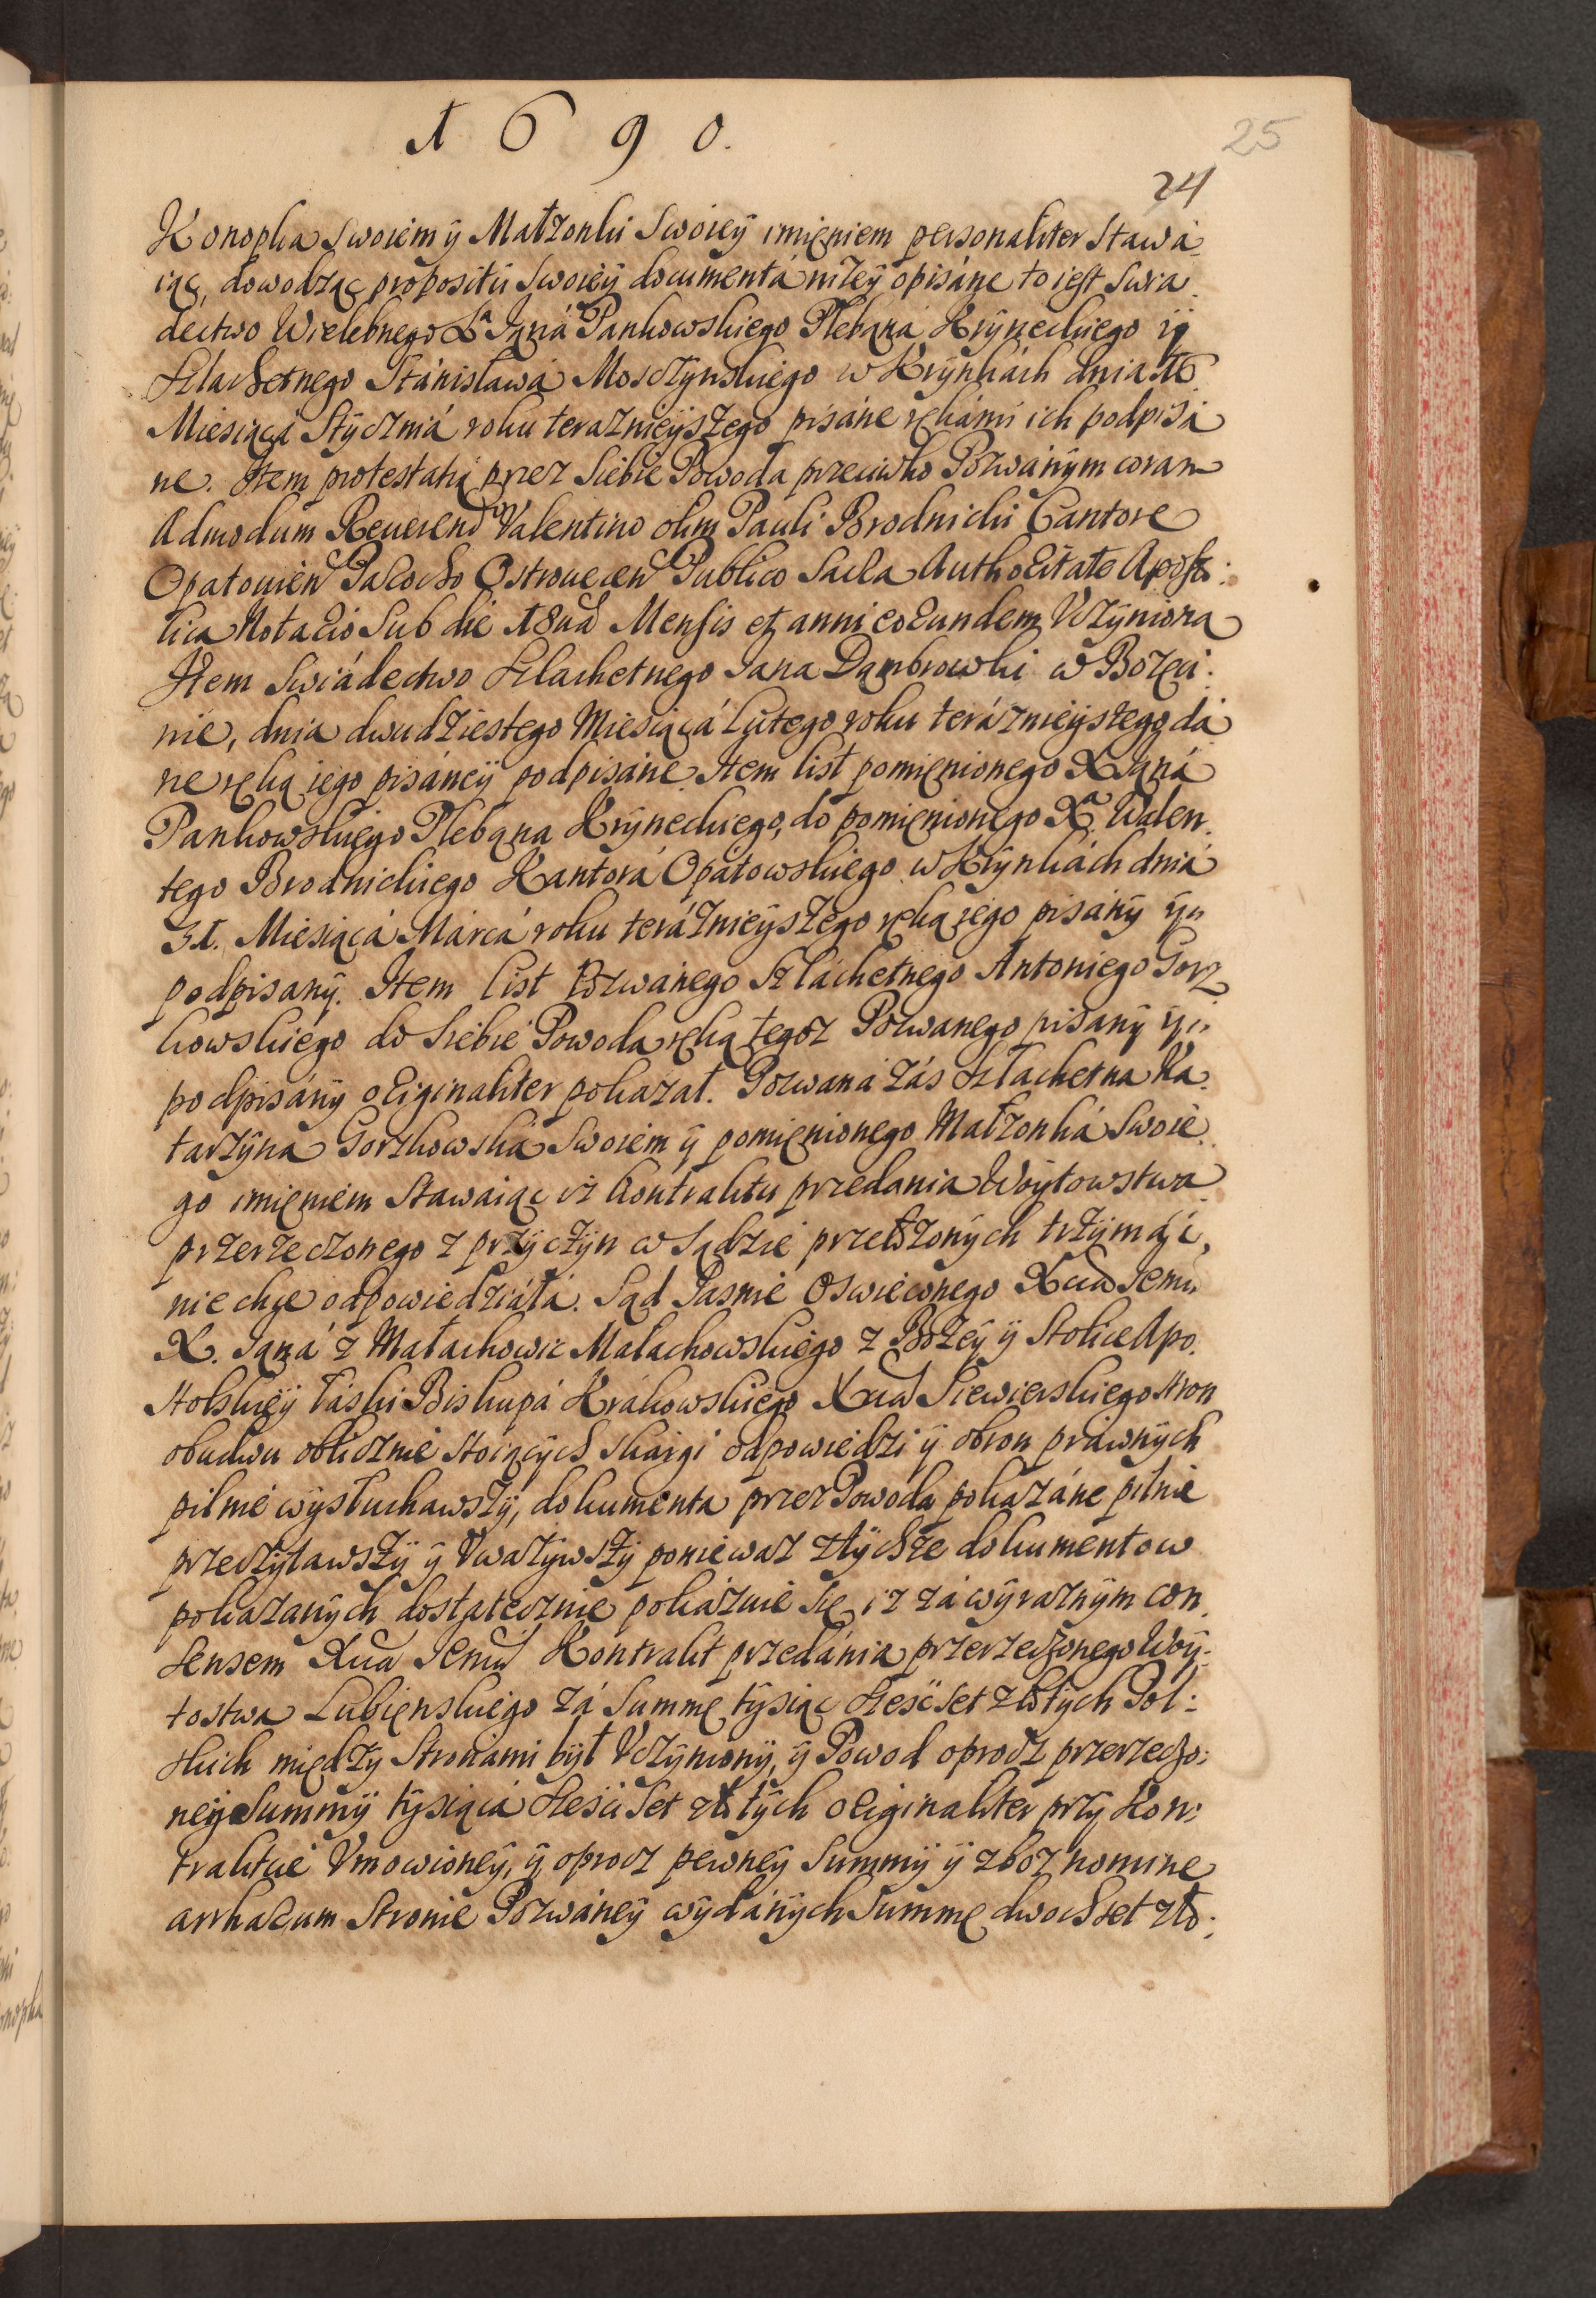 1690.
25
24
Konopka Swoiem ÿ Małżonki Swoieÿ imięniem personaliter Stawa
iąc, dowodząc propositū Swoieÿ documentá niżeÿ opisáne to iest Swia
dectwo Wielebnego Xa Janá Pankowskiego Plebaná Krÿneckiego ÿ
Szlachetnego Stánisława Moszczÿnskiego w Krÿnkách dnia 16
Miesiącá Stÿczniá roku teraznieÿszego pisáne rękámi ich podpisá
ne. Item protestatią przez Siebie Powoda przeciwko Pozwanÿm coram
Admodum Reuerendo Valentino olim Pauli Brodnicki Cantore
Opatouien Parocho Ostrouecen Publico Sacra Authoritate Aposto:
lica Notario Sub die 18ua Mensis et anni eorundem Vczÿniona
Item Swiádectwo Szlachetnego Jana Dąmbrowki w Bozęci:
nie, dnia dwudziestego Miesiącá Lutego roku teráznieÿszego dá
ne ręką iego pisáne ÿ podpisáne. Item list pomięnionego X Janá
Pankowskiego Plebana Krÿneckiego, do pomięnionego Xa Walen
tego Brodnickiego Kantorá Opátowskiego w Krÿnkách dniá
31. Miesiącá Márcá roku teráznieÿszego ręką iego pisánÿ ÿ
podpisanÿ. Item list Pozwánego Szláchetnego Antoniego Gorz
kowskiego do Siebie Powoda ręką tegoz Pozwanego pisánÿ ÿ
podpisánÿ originaliter pokázał. Pozwaná zás Szlachetna Ka
tarzÿna Gorzkowska Swoiem ÿ pomięnionego Małżonká Swoie
go imięniem Stawaiąc iż kontraktu przedania Woÿtowstwa
przerzeczonego z przÿczÿn w Sądzie przełożonÿch trzÿmáć,
nie chce odpowiedziáłá. Sąd Jasnie Oswieconego Xcia Jemci
X. Janá z Małachowic Małachowskiego z Bożeÿ ÿ Stolice Apo
Stolskieÿ łáski Biskupá Krákowskiego Xcia Siewierskiego Stron
obudwu oblicznie Stoiącÿch Skárgi odpowiedzi ÿ obron práwnÿch
pilnie wÿsłuchawszÿ, dokumenta przez Powoda pokazáne pilnie
przeczÿtawszÿ ÿ Vważÿwszÿ ponieważ z tÿchże dokumentow
pokazanÿch dostątecznie pokázuie się, iż zá wÿraznÿm con
Sensem Xcia Jemci Kontrakt przedánia przerzeczonego Woÿ:
tostwa Lubięnskiego zá Summę tÿsiąc Szesć Set złotÿch Pol:
skich międzÿ Stronami bÿł Vczÿnionÿ, ÿ Powod oprocz przerzeczo:
neÿ Summÿ tÿsiącá Szesci Set złotÿch originaliter przÿ Kon:
traktcie Vmowioneÿ, ÿ oprocz pewneÿ Summÿ ÿ zboz nomine
arrharum Stronie Pozwáneÿ wÿdánÿch Summę dwoch Set zło: